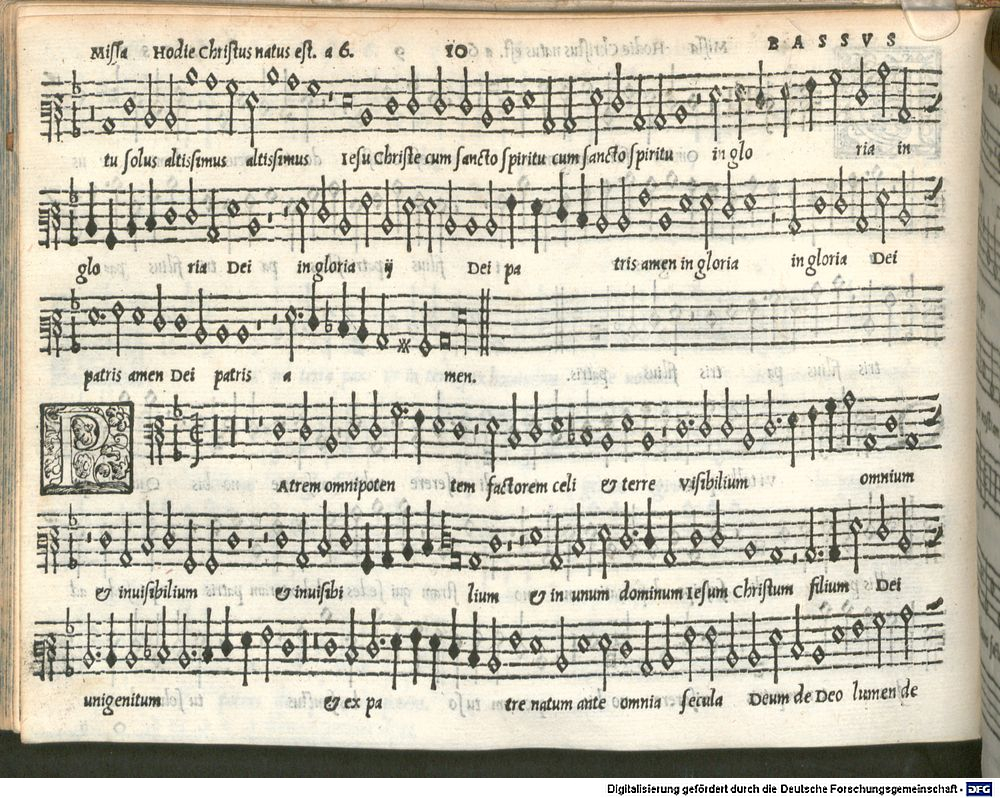 Missa Hodie Christus natus est. a 6. 10 BASSVS
tu solus altissimus altissimus Iesu Christe cum sancto spiritu cum sancto spiritu in glo ria in
glo ria Dei in gloria ij Dei pa tris amen in gloria in gloria Dei
patris amen Dei patris a men.
PAtrem omnipoten tem factorem celi & terre visibilium omnium
& inuisibilium & inuisibi lium & in unum dominum Iesum Christum filium Dei
unigenitum & ex pa tre natum ante omnia secula Deum de Deo lumen de
Digitalisierung gefördert durch die Deutsche Forschungsgemeinschaft - DFG